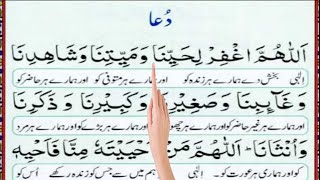 دُعا
اَللّٰهُمَّ اغْفِرْ لِحَيِّنَا وَمَيِّتِنَا وَشَاهِدِنَا
الٰہی بخش دے ہمارے ہر زندہ کو اور ہمارے ہر متوفی کو اور ہمارے ہر حاضر کو
وَغَآئِبِنَا وَصَغِيْرِنَا وَكَبِيْرِنَا وَذَكَرِنَا
اور ہمارے ہر غیر حاضر کو اور ہمارے ہر چھوٹے کو اور ہمارے ہر بڑے کو اور ہمارے ہر مرد
وَاُنْثَانَا اَللّٰهُمَّ مَنْ اَحْيَيْتَهٗ مِنَّا فَاَحْيِهٖ
کو اور ہماری ہر عورت کو الٰہی ہم میں سے جس کو زندہ رکھے اُس کو